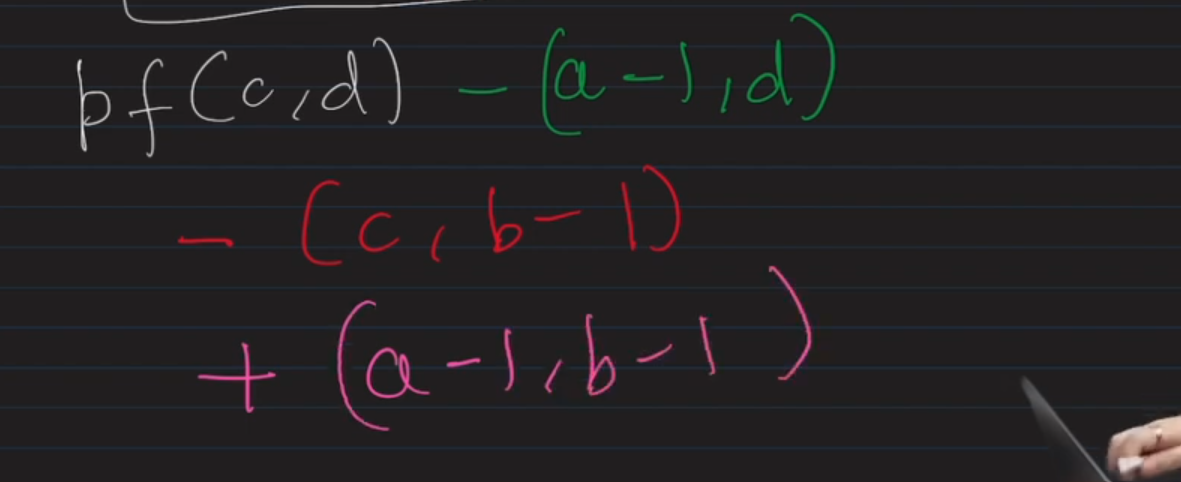 pf(c,d) - (a-1,d)
- (c, b-1)
+ (a-1, b-1)